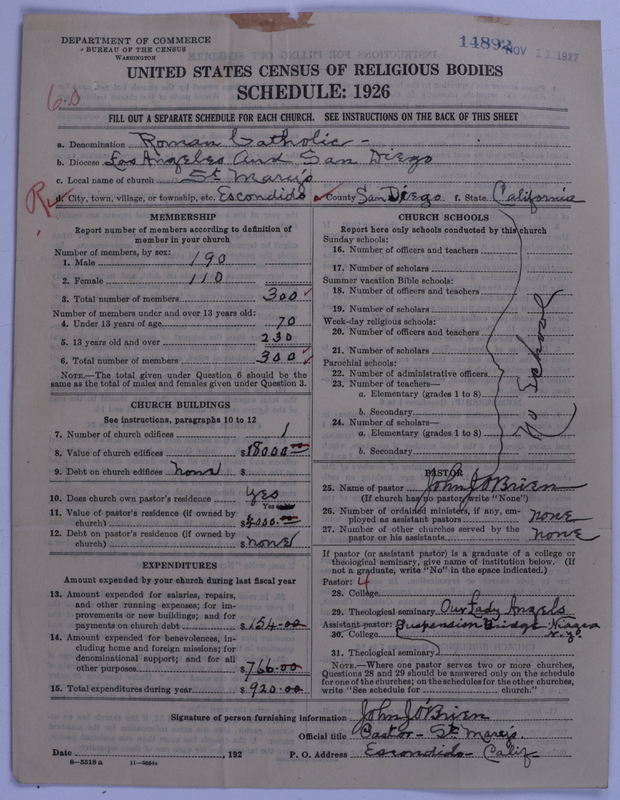 DEPARTMENT OF COMMERCE
BUREAU OF THE CENSUS
WASHINGTON
14892 NOV 1927
UNITED STATES CENSUS OF RELIGIOUS BODIES
SCHEDULE: 1926
FILL OUT A SEPARATE SCHEDULE FOR EACH CHURCH. SEE INSTRUCTIONS ON THE BACK OF THIS SHEET
a. Denomination Roman Catholic -
b. Diocese Los Angeles and San Diego
c. Local name of church St Mary's
d. City, town, village, or township, etc. Escondido e. County San Diego f. State California
MEMBERSHIP
Report number of members according to definition of
member in your church
Number of members, by sex:
1. Male 190
2. Female 110
3. Total number of members 300
Number of members under and over 13 years old:
4. Under 13 years of age 70
5. 13 years old and over 230
6. Total number of members 300
NOTE.—The total given under Question 6 should be
same as the total of males and females given under Question 3.
CHURCH BUILDINGS
See instructions, paragraphs 10 to 12
7. Number of church edifices 1
8. Value of church edifices $18000.00
9. Debt on church edifices none $
10. Does church own pastor's residence yes
Yes
11. Value of pastor's residence (if owned by
church) $4000.00
12. Debt on pastor's residence (if owned by
church) $none
EXPENDITURES
Amount expended by your church during last fiscal year
13. Amount expended for salaries, repairs,
and other running expenses; for im-
provements or new buildings; and for
payments on church debt $154.00
14. Amount expended for benevolences, in-
cluding home and foreign missions; for
denominational support; and for all
other purposes $766.00
15. Total expenditures during year $920.00
CHURCH SCHOOLS
Report here only schools conducted by this church
Sunday schools:
16. Number of officers and teachers
17. Number of scholars
Summer vacation Bible schools:
18. Number of officers and teachers
19. Number of scholars
Week-day religious schools:
20. Number of officers and teachers
21. Number of scholars
Parochial schools:
22. Number of administrative officers
23. Number of teachers—
a. Elementary (grades 1 to 8)
b. Secondary
24. Number of scholars—
a. Elementary (grades 1 to 8)
b. Secondary
No School
PASTOR
25. Name of pastor John J O'Brien
(If church has no pastor, write "None")
26. Number of ordained ministers, if any, em-
ployed as assistant pastors none
27. Number of other churches served by the
pastor or his assistants none
If pastor (or assistant pastor) is a graduate of a college or
theological seminary, give name of institution below. (If
not a graduate, write "No" in the space indicated.)
Pastor: 4
28. College
29. Theological seminary Our Lady Angels
Assistant pastor: Suspension Bridge Niagara
30. College N.Y.
31. Theological seminary
NOTE.—Where one pastor serves two or more churches,
Questions 28 and 29 should be answered only on the schedule
for one of the churches; on the schedules for the other churches,
write "See schedule for church."
Signature of person furnishing information John J O'Brien
Official title Pastor - St Mary's.
Date , 192 P. O. Address Escondido - Calif
8—5518 a